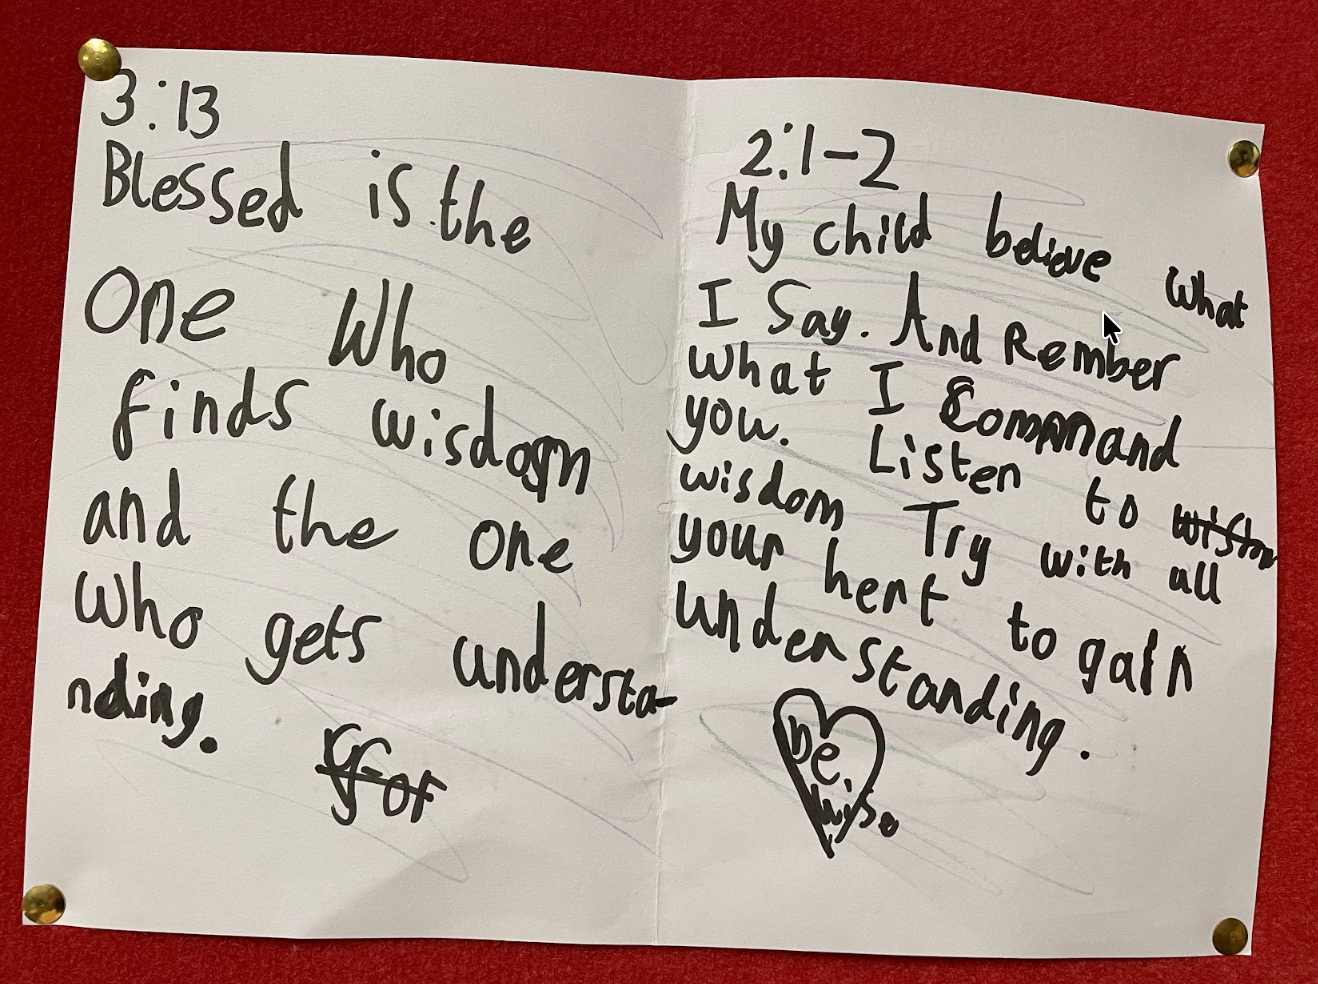 3:13
Blessed is the
One Who
finds wisdom
and the one
who gets understa-
nding.
For
2:1-2
My child believe what
I Say. And Rember
what I Command
you. Listen to wisdom
wisdom Try with all
your hert to gain
understanding.
be
wise